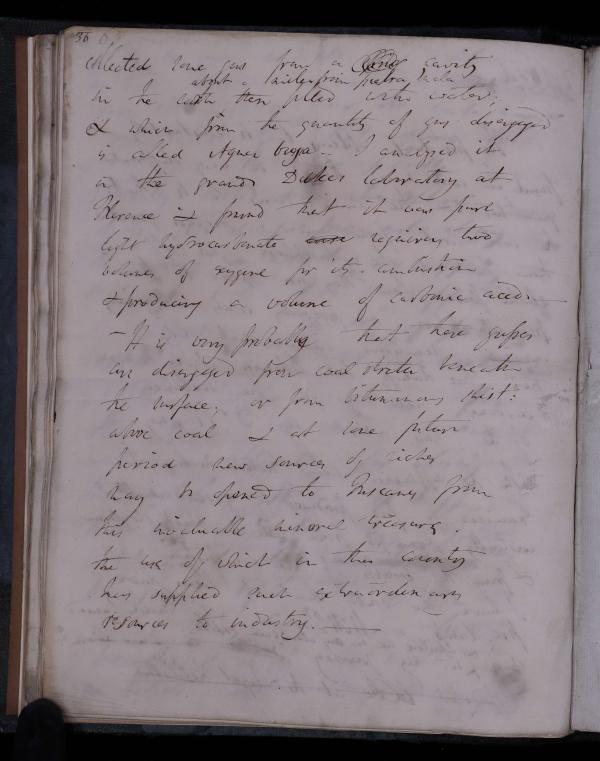 36
collected some gas from a cavity
about a mile from pietra mala
in the earth then filled with water;
& which from the quantity of gas disengaged
is called Aqua buja - I analysed it
in the grand Dukes laboratory at
Florence & found that it was pure
light hydrocarbonate requiring two
volumes of oxygene for its combustion
& producing a volume of carbonic acid. -
- It is very probable that these gasses
are disengaged from coal strata beneath
the surface, or from bituminous schist:
above coal & at some future
period new sources of riches
may be opened to Tuscany from
this invaluable mineral treasure.
the use of which in this country
has supplied such extraordinary
resources to industry. -